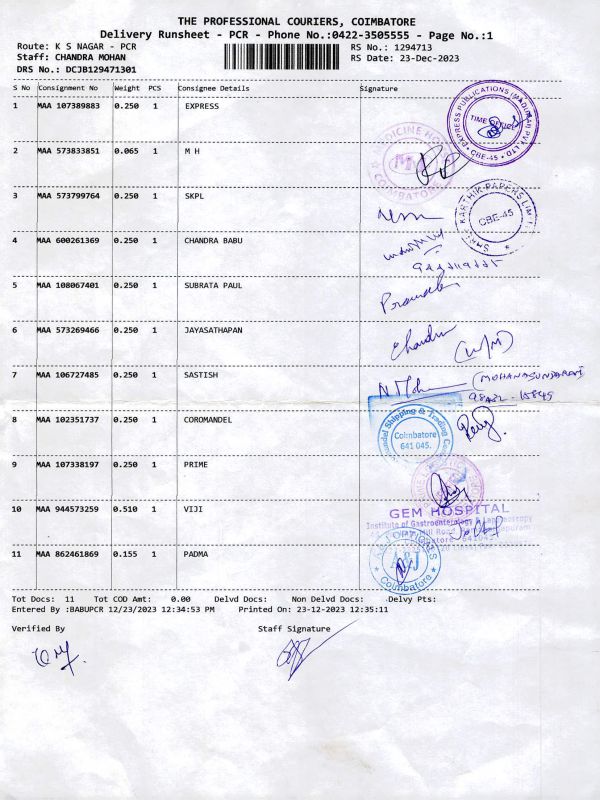 THE PROFESSIONAL COURIERS, COIMBATORE
Delivery Runsheet - PCR - Phone No.:0422-3505555 - Page No.:1
Route: K S NAGAR - PCR RS No.: 1294713
Staff: CHANDRA MOHAN RS Date: 23-Dec-2023
DRS No.: DCJB129471301
S No Consignment No Weight PCS Consignee Details Signature
1 MAA 107389883 0.250 1 EXPRESS
EXPRESS PUBLICATIONS (MADURAI) PVT LTD
CBE-45
2 MAA 573833851 0.065 1 M H
MEDICINE
COIMBATORE
3 MAA 573799764 0.250 1 SKPL
KARTHIK PAPERS
CBE-45
4 MAA 600261369 0.250 1 CHANDRA BABU
5 MAA 108067401 0.250 1 SUBRATA PAUL
6 MAA 573269466 0.250 1 JAYASATHAPAN
Chandra (W/M)
7 MAA 106727485 0.250 1 SASTISH
(MOHANASUNDARAM)
8 MAA 102351737 0.250 1 COROMANDEL
Shipping & Trading
Coimbatore
641 045.
9 MAA 107338197 0.250 1 PRIME
10 MAA 944573259 0.510 1 VIJI
GEM HOSPITAL
Institute of Gastroenterology & Laparoscopy
11 MAA 862461869 0.155 1 PADMA
A&J OPTICALS
A&J
Coimbatore
Tot Docs: 11 Tot COD Amt: 0.00 Delvd Docs: Non Delvd Docs: Delvy Pts:
Entered By :BABUPCR 12/23/2023 12:34:53 PM Printed On: 23-12-2023 12:35:11
Verified By Staff Signature